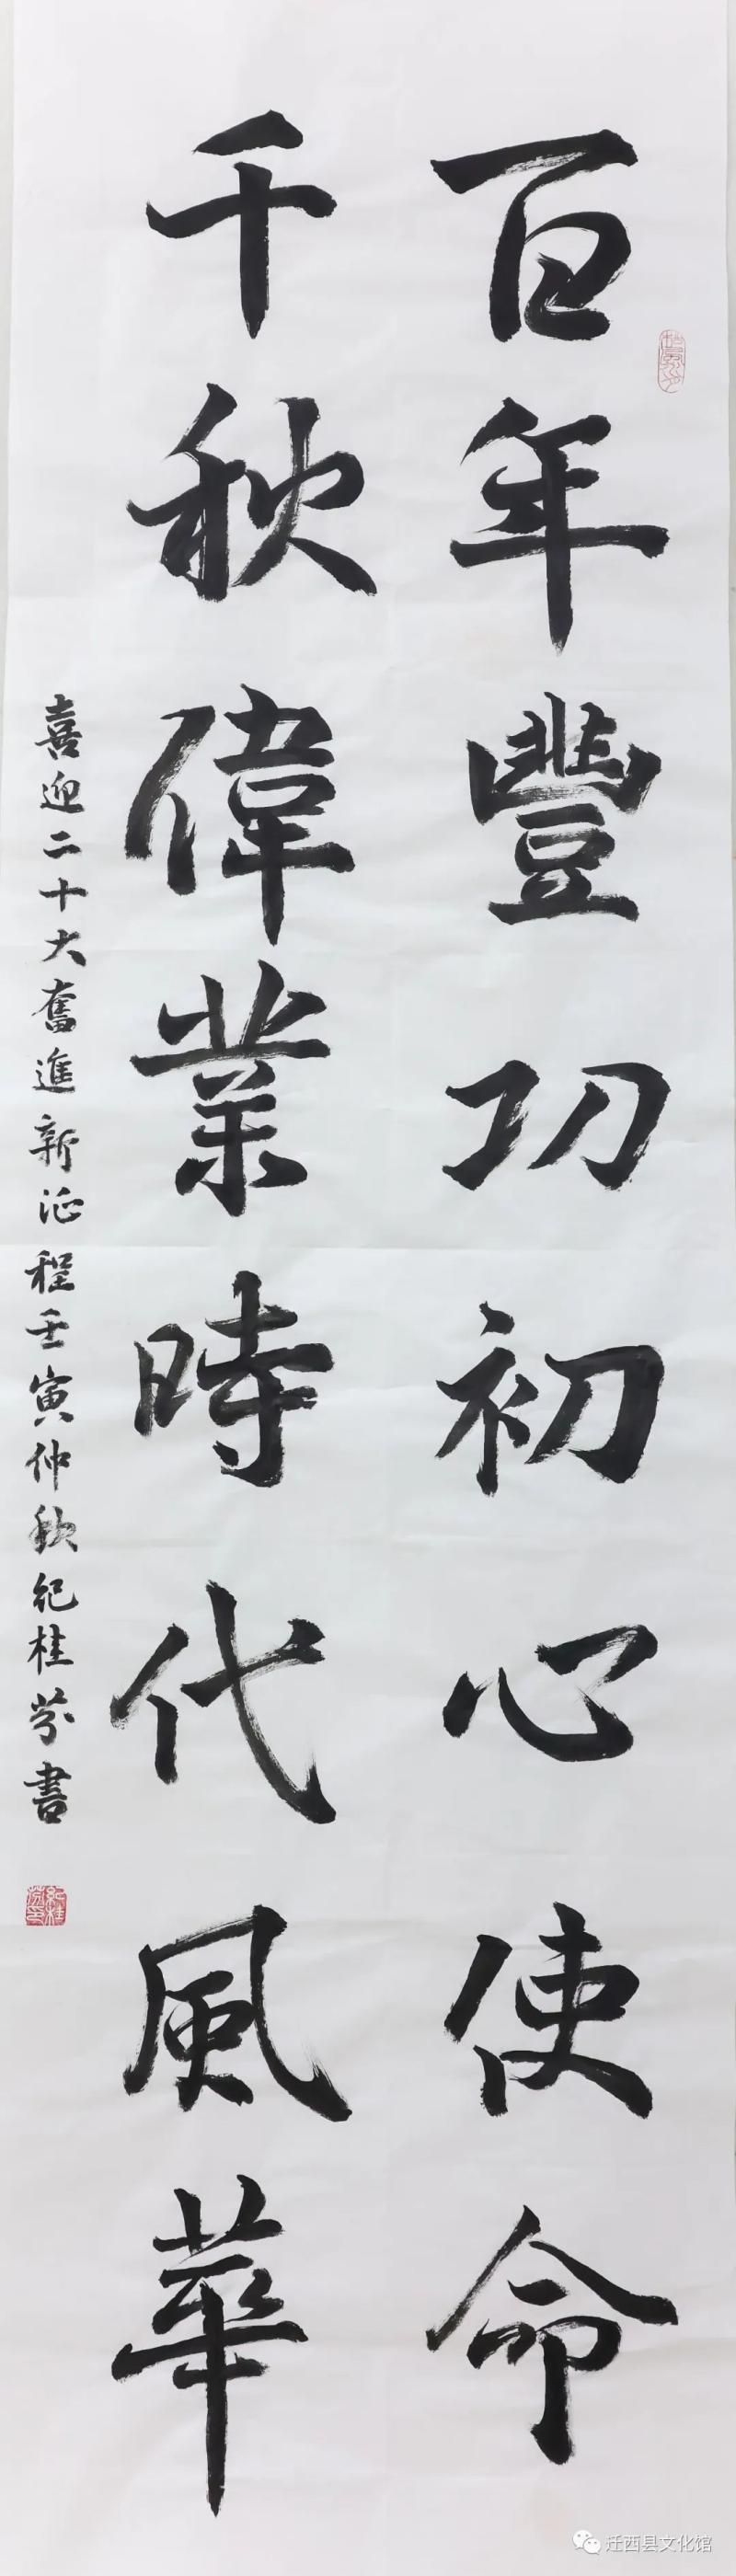 百年豐功初心使命
千秋偉業時代風華
喜迎二十大奮進新征程壬寅仲秋紀桂芬書
紀桂芬印
迁西县文化馆